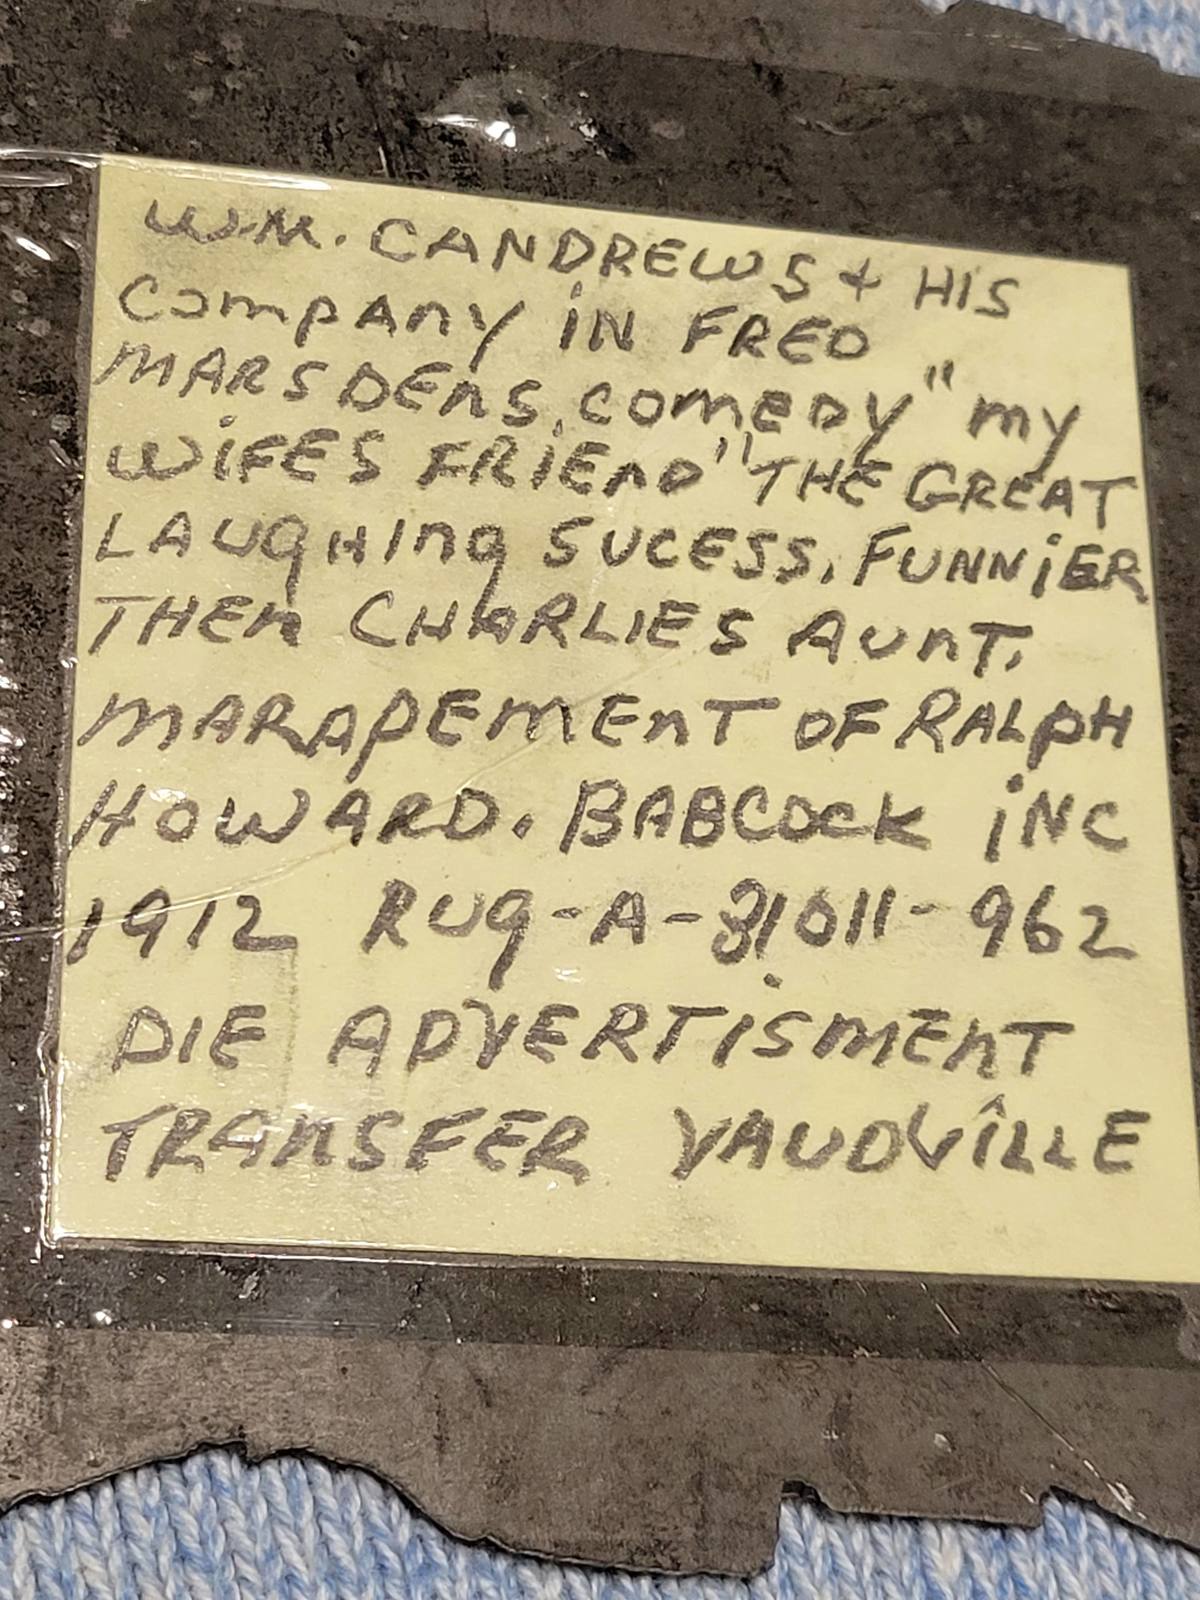 WM. CANDREWS + HIS
COMPANY IN FRED
MARSDENS COMEDY "MY
WIFES FRIEND" THE GREAT
LAUGHING SUCESS, FUNNIER
THEN CHARLIES AUNT,
MARAPEMENT OF RALPH
HOWARD. BABCOCK INC
1912 RUG-A-31011-962
DIE ADVERTISMENT
TRANSFER VAUDVILLE